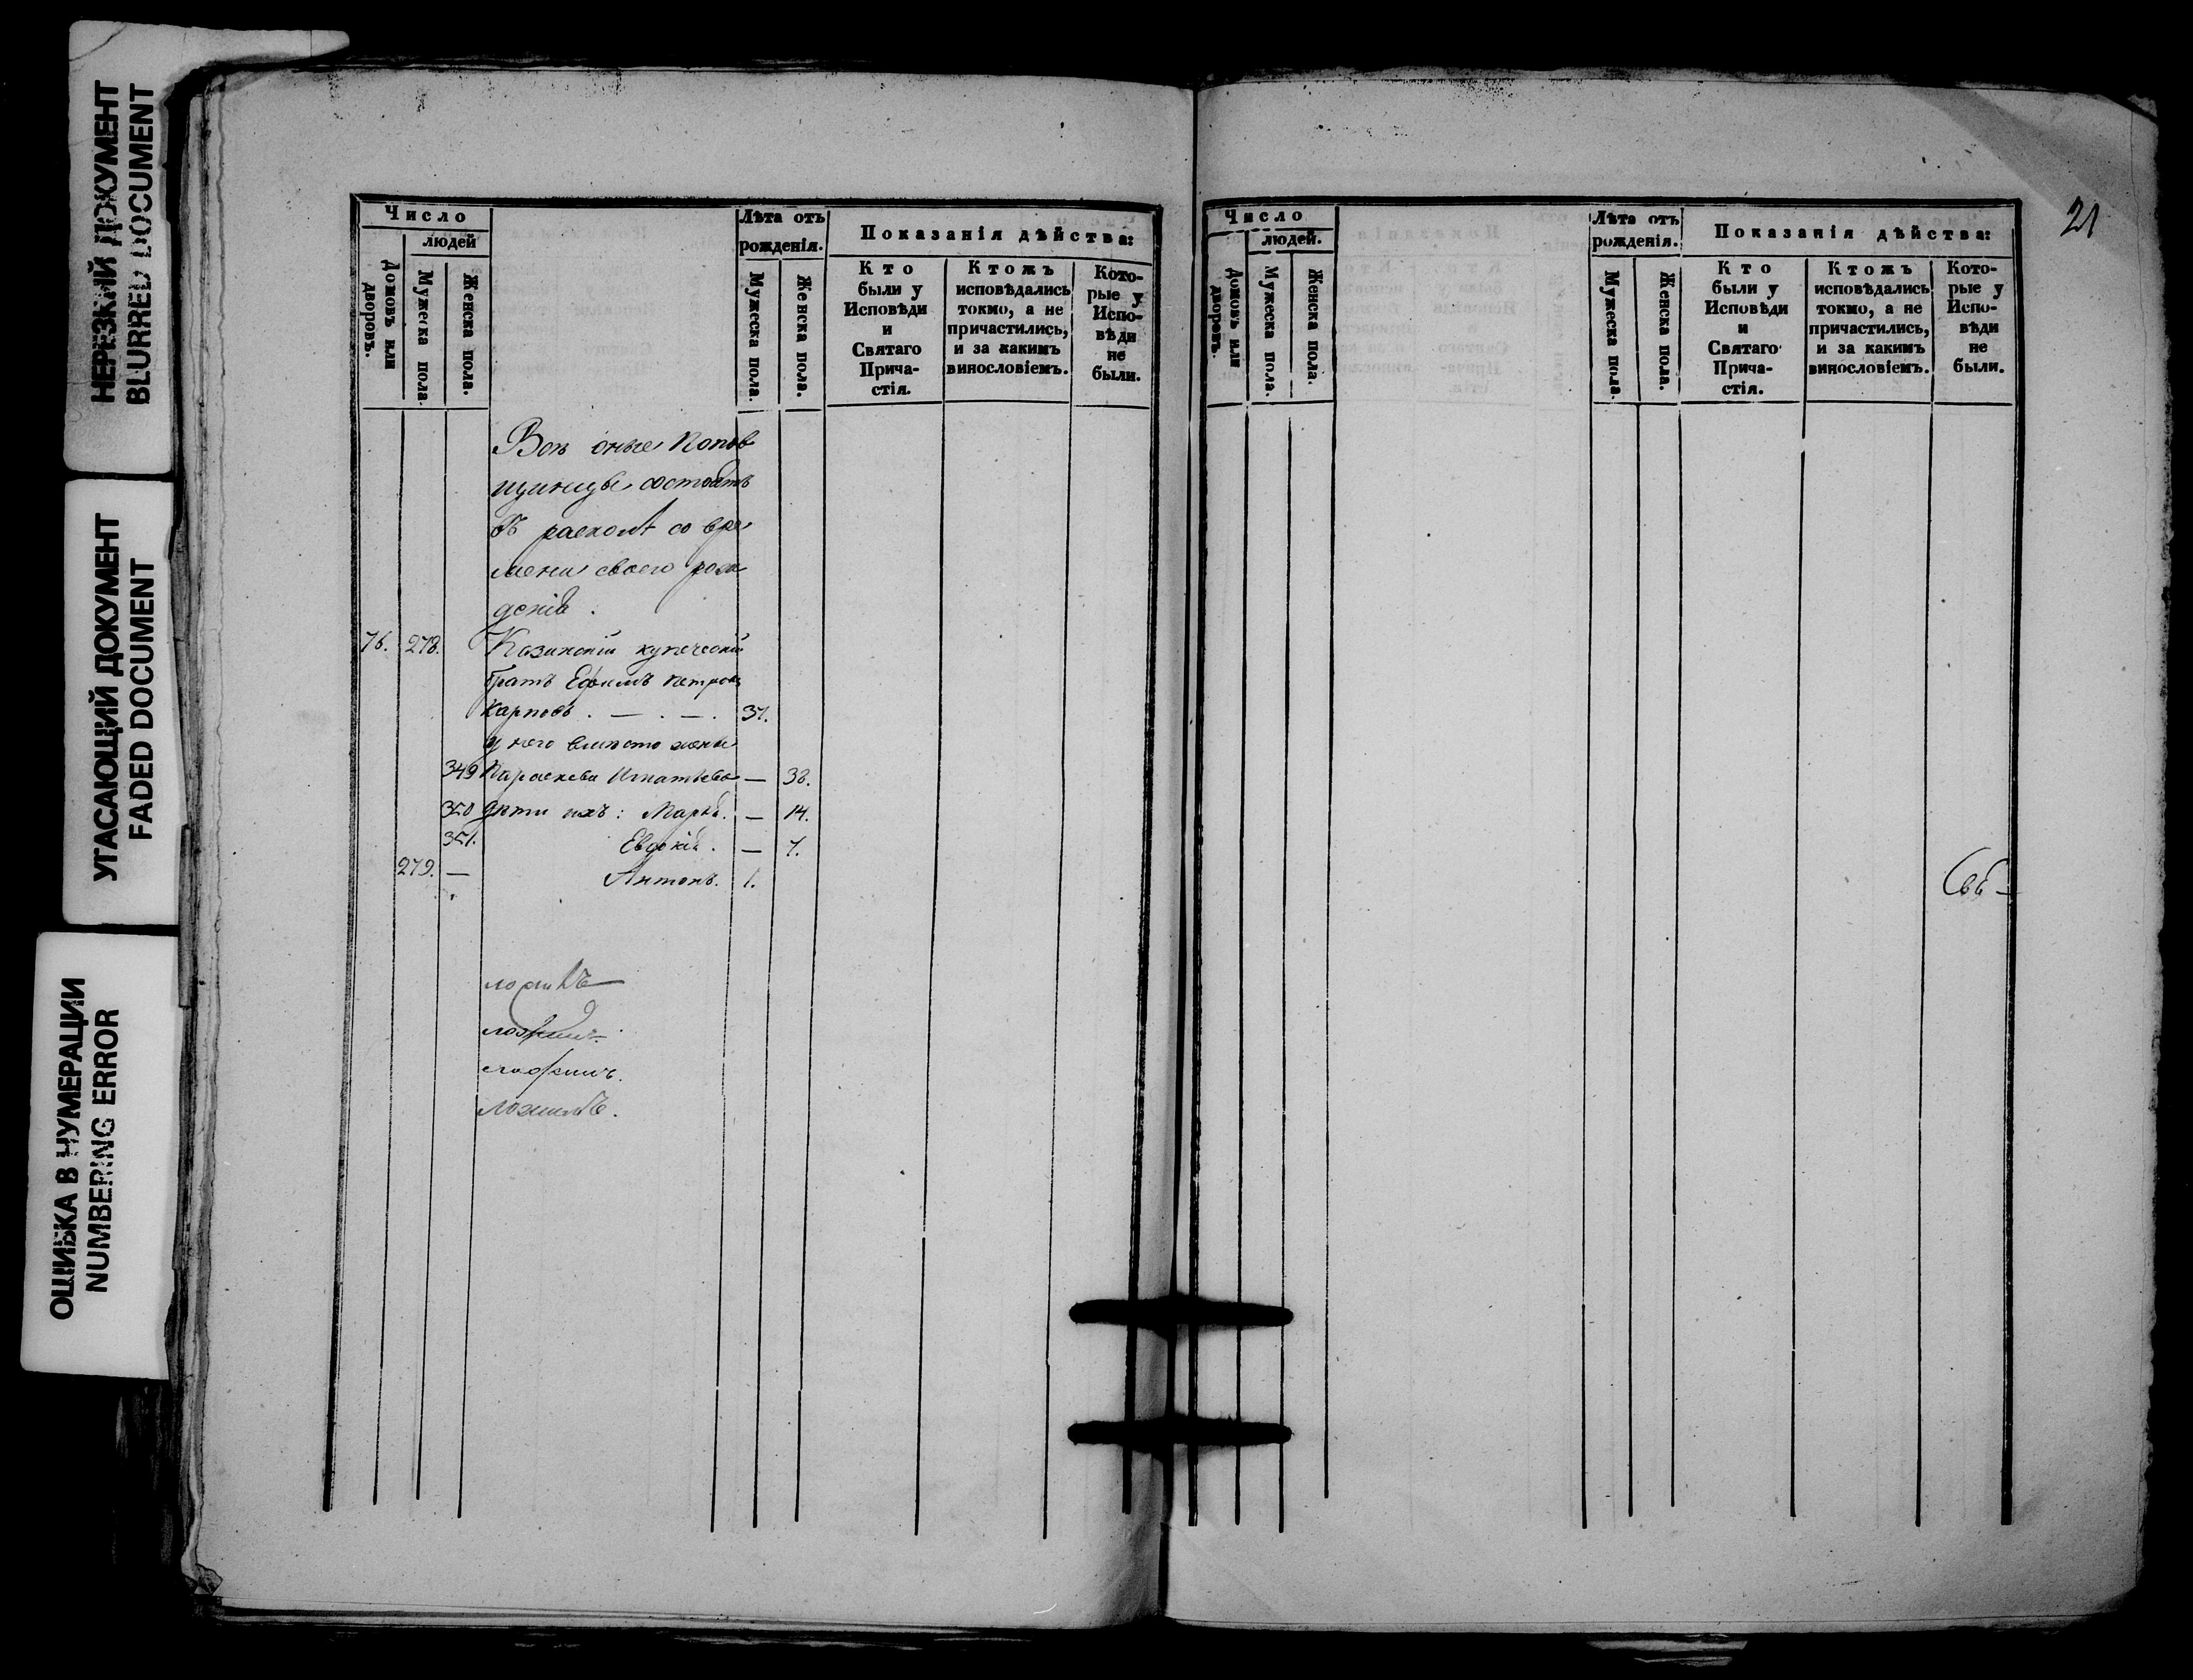 НЕРЕЗКИЙ ДОКУМЕНТ
BLURRED DOCUMENT
УГАСАЮЩИЙ ДОКУМЕНТ
FADED DOCUMENT
ОШИБКА В НУМЕРАЦИИ
NUMBERING ERROR
Число
людей
Домовъ или дворовъ.
Мужеска пола.
Женска пола.
Лѣта отъ рожденія.
Мужеска пола.
Женска пола.
Показанія дѣйства:
Кто
были у
Исповѣди
и
Святаго
Прича-
стія.
Ктожъ
исповѣдались
токмо, а не
причастились,
и за какимъ
винословіемъ.
Кото-
рые у
Испо-
вѣди
не
были.
Всѣ оные Попов
щинцы состоятъ
въ расколѣ со вре
мени своего рож
денія.
76. 278. Казинскій купеческій
братъ Ефимъ Петровъ
Карповъ . — . — . 37.
у него вмѣсто жены
349 Параскева Игнатьева — 38.
350 дѣти ихъ: Марья. — 14.
351. Евдокія. — 7.
279. — Антонъ. 1.
21
Число
людей.
Домовъ или дворовъ.
Мужеска пола.
Женска пола.
Лѣта отъ рожденія.
Мужеска пола.
Женска пола.
Показанія дѣйства:
Кто
были у
Исповѣди
и
Святаго
Прича-
стія.
Ктожъ
исповѣдались
токмо, а не
причастились,
и за какимъ
винословіемъ.
Кото-
рые у
Испо-
вѣди
не
были.